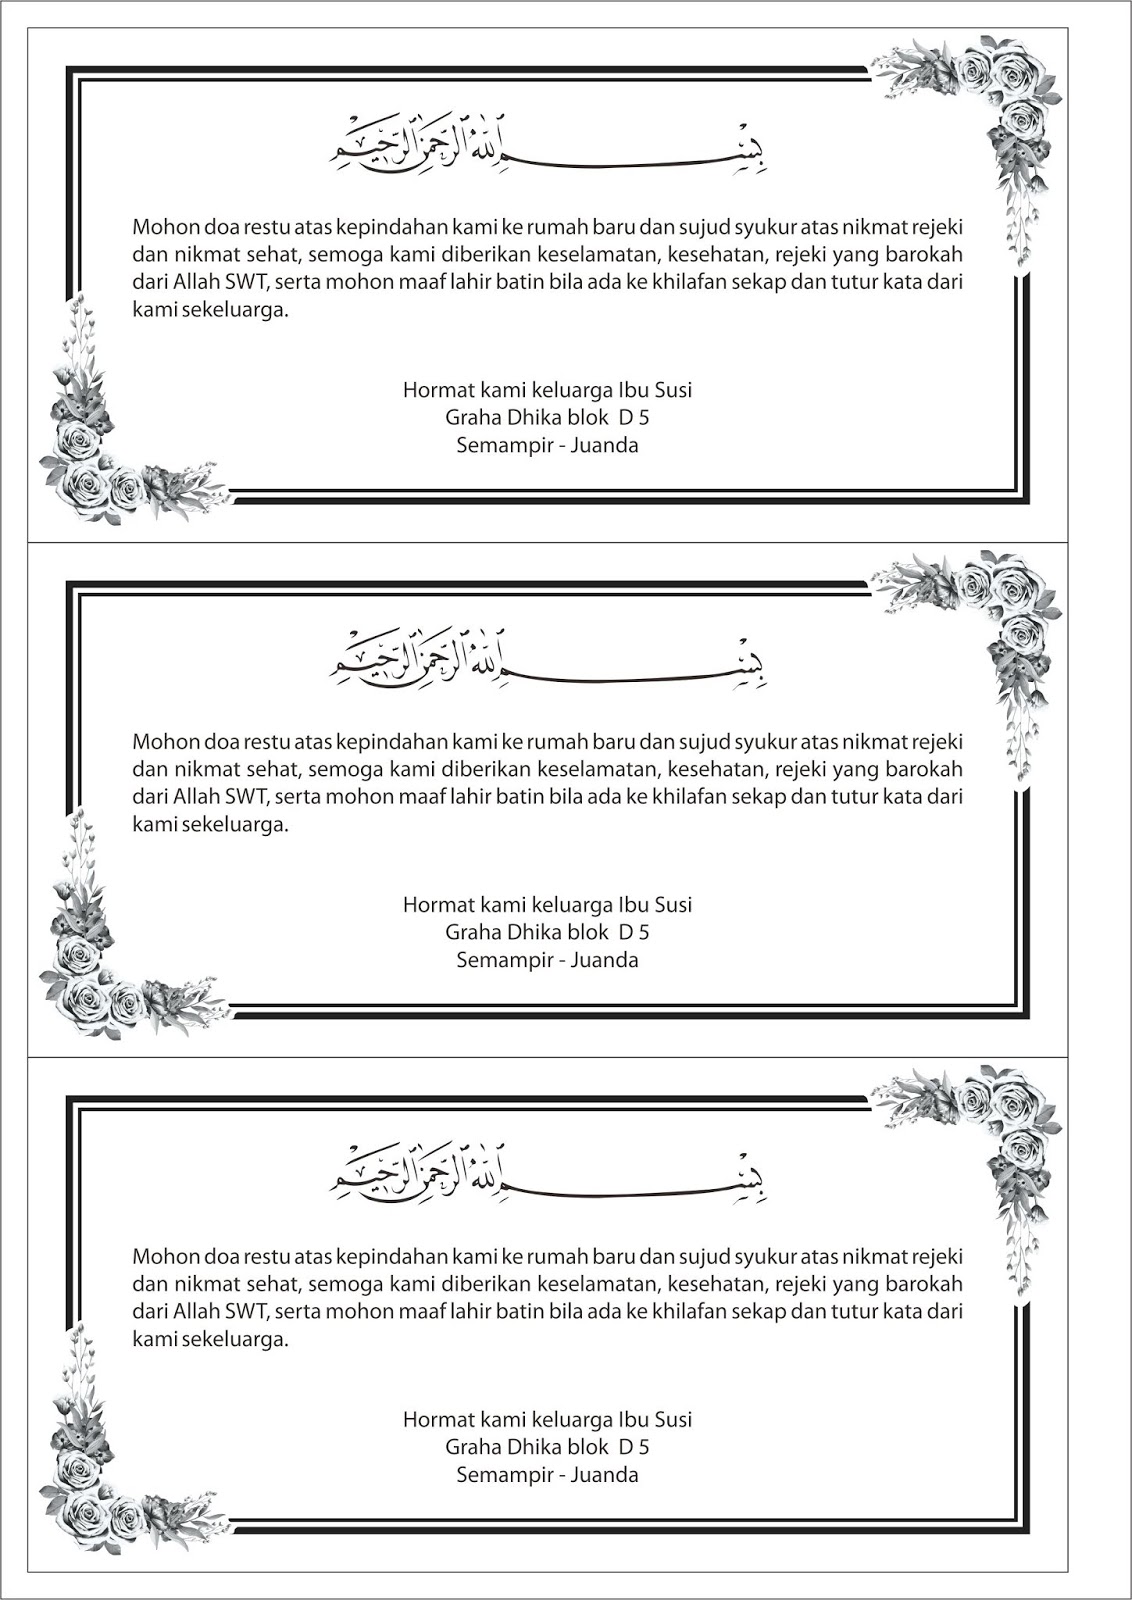 بِسْمِ اللَّهِ الرَّحْمَٰنِ الرَّحِيمِ
Mohon doa restu atas kepindahan kami ke rumah baru dan sujud syukur atas nikmat rejeki
dan nikmat sehat, semoga kami diberikan keselamatan, kesehatan, rejeki yang barokah
dari Allah SWT, serta mohon maaf lahir batin bila ada ke khilafan sekap dan tutur kata dari
kami sekeluarga.
Hormat kami keluarga Ibu Susi
Graha Dhika blok D 5
Semampir - Juanda
بِسْمِ اللَّهِ الرَّحْمَٰنِ الرَّحِيمِ
Mohon doa restu atas kepindahan kami ke rumah baru dan sujud syukur atas nikmat rejeki
dan nikmat sehat, semoga kami diberikan keselamatan, kesehatan, rejeki yang barokah
dari Allah SWT, serta mohon maaf lahir batin bila ada ke khilafan sekap dan tutur kata dari
kami sekeluarga.
Hormat kami keluarga Ibu Susi
Graha Dhika blok D 5
Semampir - Juanda
بِسْمِ اللَّهِ الرَّحْمَٰنِ الرَّحِيمِ
Mohon doa restu atas kepindahan kami ke rumah baru dan sujud syukur atas nikmat rejeki
dan nikmat sehat, semoga kami diberikan keselamatan, kesehatan, rejeki yang barokah
dari Allah SWT, serta mohon maaf lahir batin bila ada ke khilafan sekap dan tutur kata dari
kami sekeluarga.
Hormat kami keluarga Ibu Susi
Graha Dhika blok D 5
Semampir - Juanda